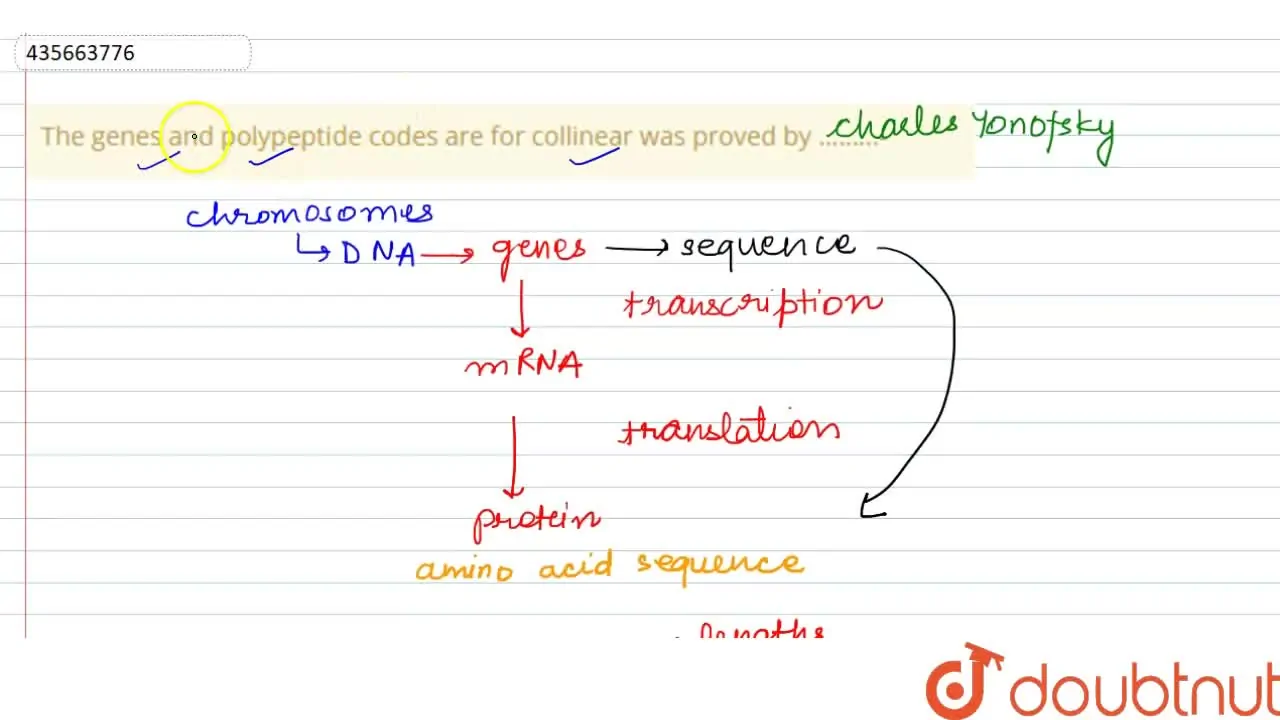 435663776
The genes and polypeptide codes are for collinear was proved by ......... charles Yonofsky
chromosomes
DNA → genes → sequence
transcription
mRNA
translation
protein
amino acid sequence
lengths
doubtnut